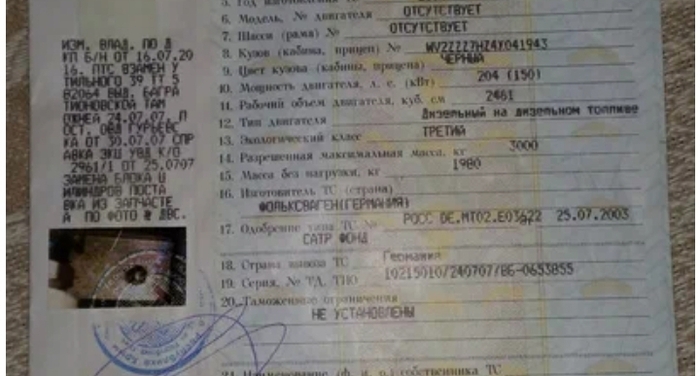 6. Модель, № двигателя ОТСУТСТВУЕТ
7. Шасси (рама) № ОТСУТСТВУЕТ
8. Кузов (кабина, прицеп) № WV2ZZZ7HZ4X041943
9. Цвет кузова (кабины, прицепа) ЧЕРНЫЙ
10. Мощность двигателя, л. с. (кВт) 204 (150)
11. Рабочий объем двигателя, куб. см 2461
12. Тип двигателя Дизельный на дизельном топливе
13. Экологический класс ТРЕТИЙ
14. Разрешенная максимальная масса, кг 3000
15. Масса без нагрузки, кг 1980
16. Изготовитель ТС (страна)
ФОЛЬКСВАГЕН(ГЕРМАНИЯ)
17. Одобрение типа ТС № РОСС DE.МТ02.Е03622 25.07.2003
САТР ФОНД
18. Страна вывоза ТС Германия
19. Серия, № ТД, ТПО 10215010/240707/В6-0653855
20. Таможенные ограничения
НЕ УСТАНОВЛЕНЫ
21. Наименование (ф. и. о.) собственника ТС
ИЗМ. ВЛАД. ПО Д
КП Б/Н ОТ 16.07.20
16. ПТС ВЗАМЕН У
ТИЛЬНОГО 39 ТТ 5
82064 ВЫД. БАГРА
ТИОНОВСКОЙ ТАМ
ОЖНЕЙ 24.07.07. П
ОСТ. ОВД ГУРЬЕВС
КА ОТ 30.07.07 СПР
АВКА ЭКЦ УВД К/О
2961/1 ОТ 25.0707
ЗАМЕНА БЛОКА Ц
ИЛИНДРОВ ПОСТА
ВКА ИЗ ЗАПЧАСТЕ
А ПО ФОТО № ДВС.